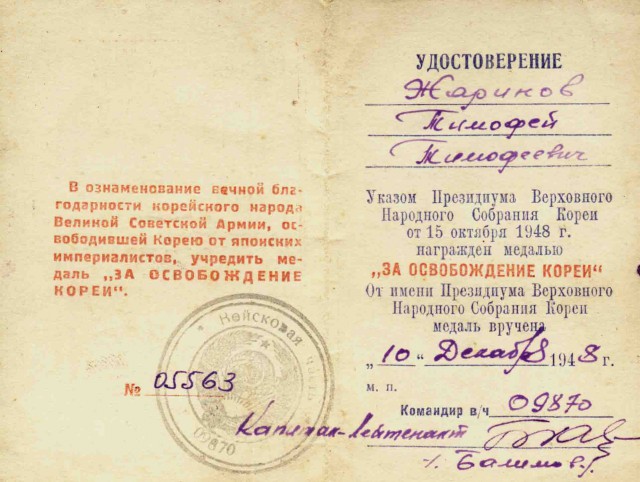 В ознаменование вечной бла-
годарности корейского народа
Великой Советской Армии, ос-
вободившей Корею от японских
империалистов, учредить ме-
даль „ЗА ОСВОБОЖДЕНИЕ
КОРЕИ“.
№ 05563
* Войсковая часть
09870
УДОСТОВЕРЕНИЕ
Жаринов
Тимофей
Тимофеевич
Указом Президиума Верховного
Народного Собрания Кореи
от 15 октября 1948 г.
награжден медалью
„ЗА ОСВОБОЖДЕНИЕ КОРЕИ“
От имени Президиума Верховного
Народного Собрания Кореи
медаль вручена
„10“ Декабря 1948 г.
м. п.
Командир в/ч 09870
Капитан-Лейтенант